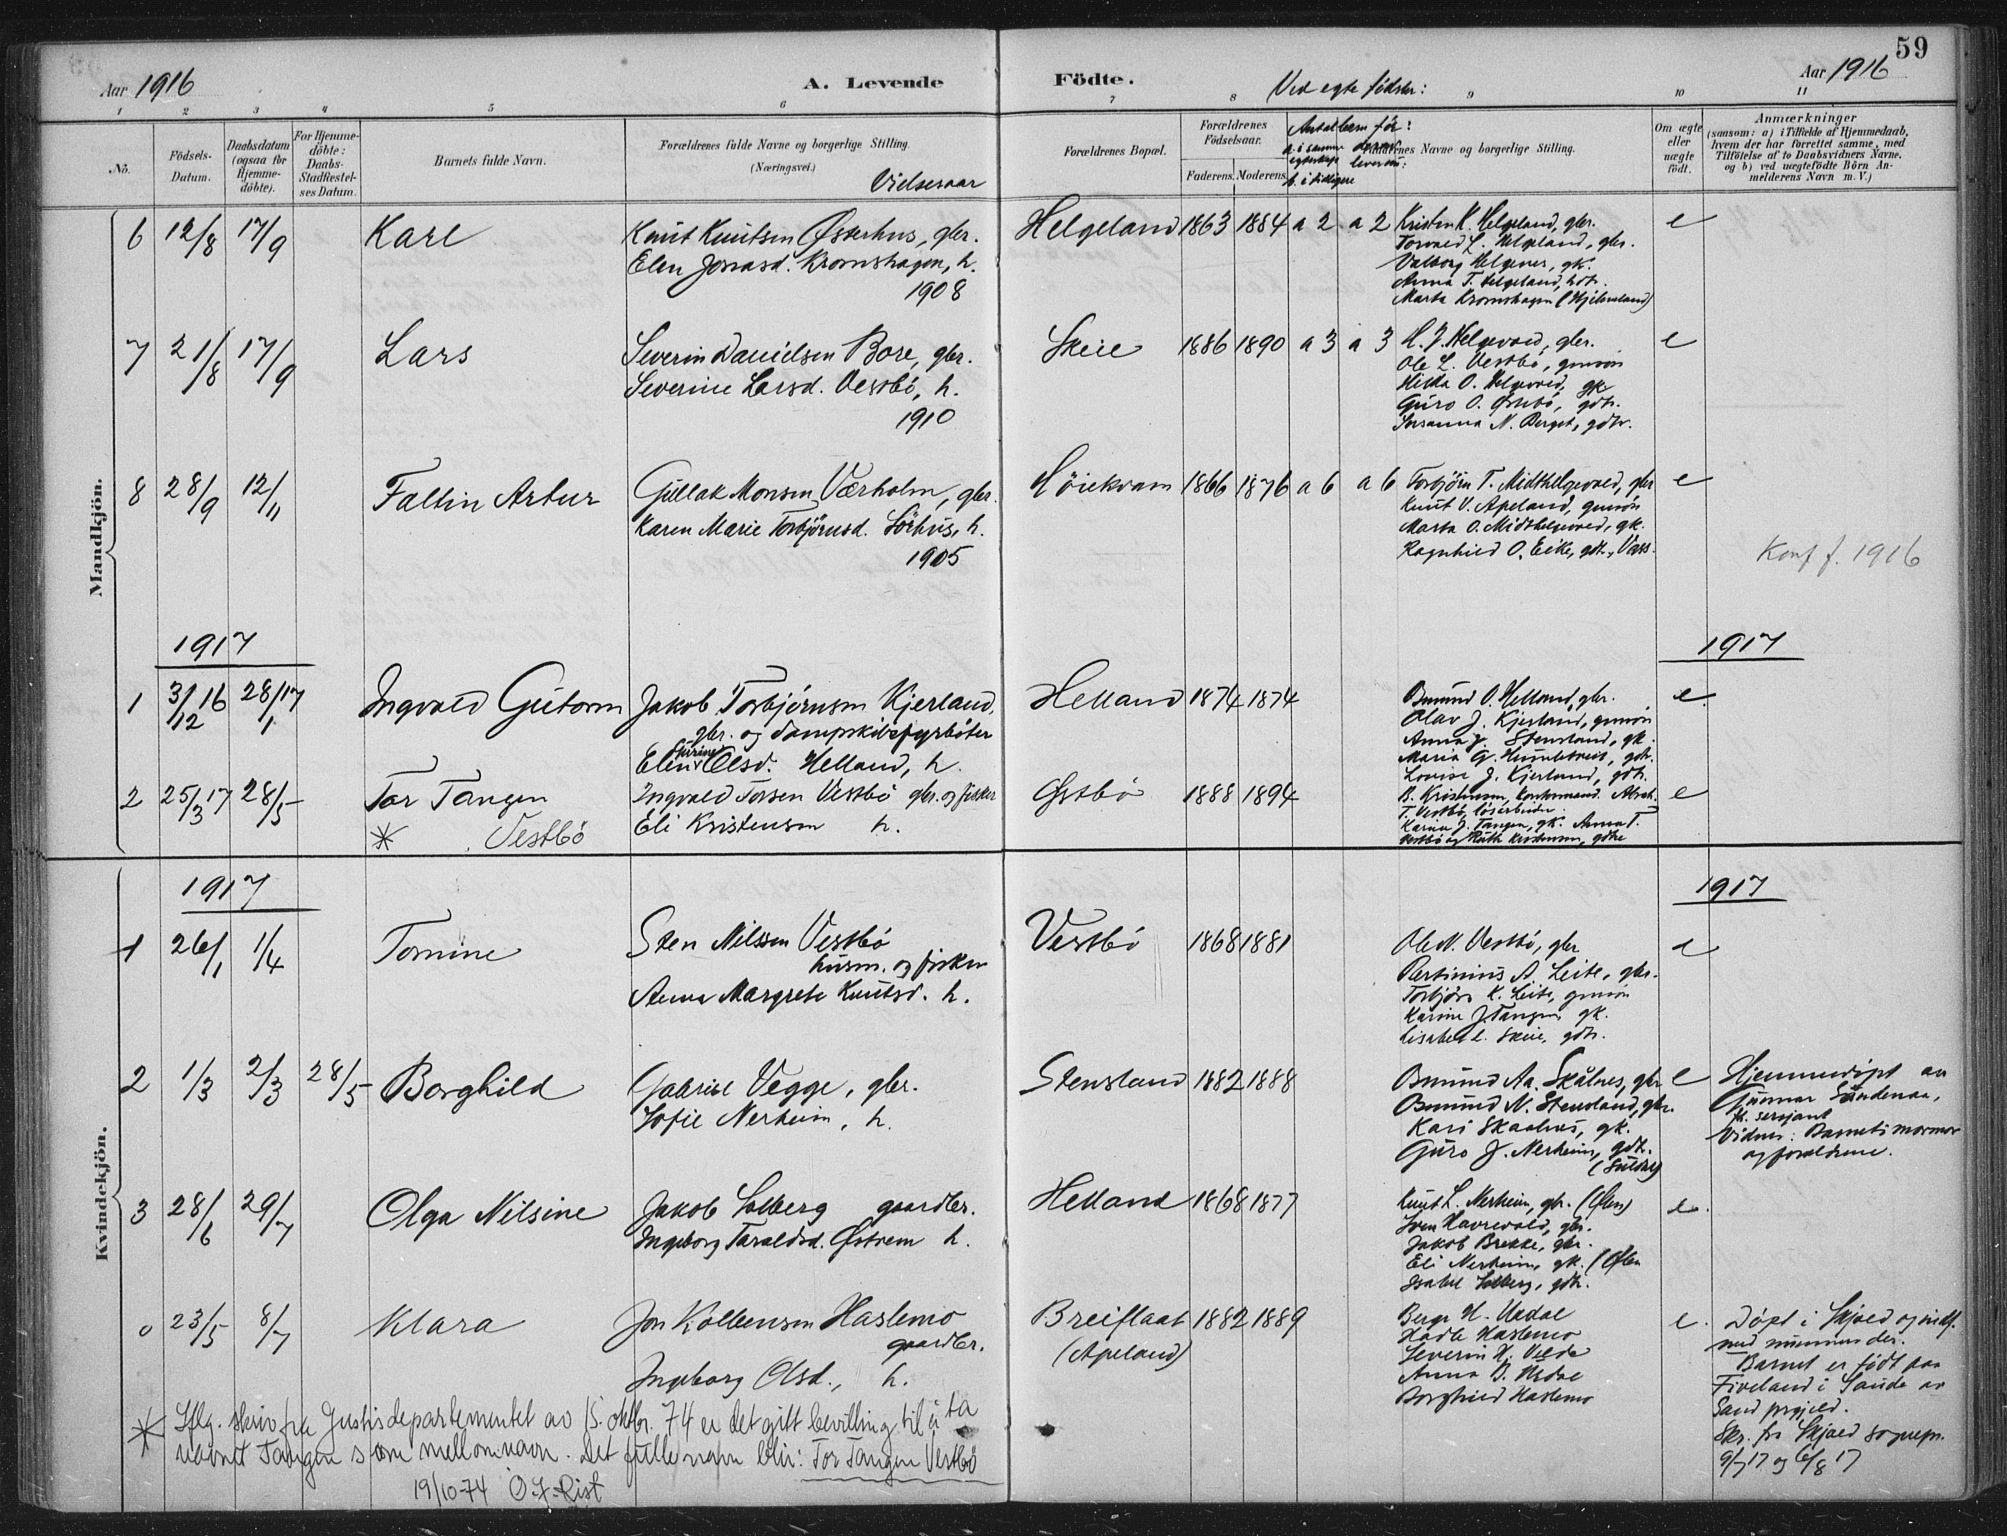 59
Aar 1916
A. Levende
Födte.
Ved egte fødsler:
Aar 1916
1 2 3 4 5 6 7 8 9 10 11
No.
Födsels-Datum.
Daabsdatum (ogsaa for Hjemme-döbte).
For Hjemme-döbte: Daabs-Stadfæstel-ses Datum.
Barnets fulde Navn.
Forældrenes fulde Navne og borgerlige Stilling.
(Næringsvei.)
Vielsesaar
Forældrenes Bopæl.
Forældrenes Födselsaar.
Faderens. Moderens.
Antal barn før:
a. i samme egteskap
b. i tidligere
derav levende:
Faddernes Navne og borgerlige Stilling.
Om ægte eller uægte födt.
Anmærkninger
(saasom: a) i Tilfælde af Hjemmedaab, hvem der har forrettet samme, med Tilföielse af to Daabsvidners Navne, og b) ved uægtefödte Börn An-melderens Navn m. V.)
Mandkjön.
6 12/8 17/9 Karl
Knut Knutsen Østerhus, gbr.
Elen Jonasd. Kromshagen, h.
1908
Helgeland 1863 1884 a 2 a 2
Kristen K. Helgeland, gbr.
Torvald L. Helgeland, gbr.
Valborg Helgenes, gk.
Anna T. Helgeland, hdtr.
Marta Kromshagen (Hjelmeland)
e
7 21/8 17/9 Lars
Severin Danielsen Bore, gbr.
Severine Larsd. Vestbø, h.
1910
Skeie 1886 1890 a 3 a 3
H. J. Helgevold, gbr.
Ole L. Vestbö, gmsøn
Hilda O. Helgevold, gk.
Guro O. Østebö, gdtr.
Susanna N. Berget, gdtr.
e
8 28/9 12/11 Faltin Artur
Gullak Monsen Værholm, gbr.
Karen Marie Torbjörnsd. Sörhus, h.
1905
Höiekvam 1866 1876 a 6 a 6
Torbjörn T. Midthelgevold, gbr
Knut V. Apeland, gmsøn
Marta O. Midthelgevold, gk.
Ragnhild O. Eike, gdtr., Vats.
e
Konf f. 1916
1917
1917
1 3/12 16 28/1 17 Ingvald Gutorm
Jakob Torbjörnsen Kjerland,
gbr. og dampskibsfyrböter
Elen Olsd. Helland, h.
Helland 1874 1874
Omund O. Helland, gbr.
Olav J. Kjerland, gmsøn
Anna J. Stensland, gk.
Maria G. Hundstveit, gdtr.
Lovise J. Kjerland, gdtr.
e
2 25/3 17 28/5 Tor Tangen
* Vestbö
Ingvald Torsen Vestbö gbr. og fisker
Eli Kristensen h.
Østbö 1888 1894
B. Kristensen, kontormand. Abrah.
T. Vestbö, lösarbeider
Karine J. Tangen, gk. Anna T.
Vestbö og Ruth Kristensen, gdtre
e
Kvindekjön.
1917
1917
1 26/1 1/4 Tomine
Sten Nilssen Vestbö
husm. og fisker
Anna Margrete Knutsd. h.
Vestbö 1868 1881
Ole N. Vestbö, gbr
Bertinius A. Leite, gbr.
Torbjörn K. Leite, gmsøn
Karine J. Tangen, gk.
Lisabet L. Skeie, gdtr.
e
2 1/3 2/3 28/5 Borghild
Gabriel Vegge, gbr.
Sofie Nerheim, h.
Stensland 1882 1888
Omund Aa. Skålnes, gbr
Omund N. Stensland, gbr.
Kari Skaalnes, gk.
Guro J. Nerheim, gdtr.
(Suldal)
e
Hjemmedöpt av
Gunnar Sandenaa,
fh. sersjant
Vidner: Barnets mormor
og foreldrene.
3 28/6 29/7 Olga Nilsine
Jakob Solberg gaardbr.
Ingeborg Taraldsd. Østrem h.
Helland 1868 1877
Knut L. Nerheim, gbr. (Ølen)
Sven Havrevold, gbr.
Jakob Brekke, gbr.
Eli Nerheim, gk. (Ølen
Isabel Solberg, gdtr.
e.
0 23/5 8/7 Klara
Jon Kolbensen Haslemo
gaardbr.
Ingeborg Olsd., h.
Breiflaat
(Apeland)
1882 1889
Berge H. Uvdal
Hada Haslemo
Severin H. Velde
Anna B. Uvdal
Borghild Haslemo
e.
Döpt i Skjold og indf.
med nummer der.
Barnet er födt paa
Fiveland i Sauda av
Sand prgjeld.
Skr. fra Skjold sognepr.
9/7 17 og 6/8 17
* Iflg. skriv fra Justisdepartementet av 15. oktbr. 74 er det gitt bevilling til å ta
navnet Tangen som mellomnavn. Det fulle navn blir: Tor Tangen Vestbö
19/10-74 O. J. Rist